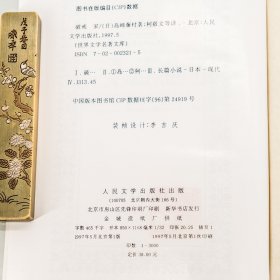 图书在版编目(CIP)数据
破戒 家/(日)岛崎藤村著;柯毅文等译.-北京:人民
文学出版社,1997.5
(世界文学名著文库)
ISBN 7-02-002321-5
Ⅰ.破… Ⅱ.①岛…②柯… Ⅲ.长篇小说-日本-现代
Ⅳ.I313.45
中国版本图书馆CIP数据核字(96)第24919号
装帧设计:李吉庆
人民文学出版社出版
(100705 北京朝内大街166号)
北京市房山区先锋印刷厂印刷 新华书店发行
金城造纸厂供纸
字数465千字 开本850×1168毫米1/32 印张20.25 插页1
1997年5月北京第1版 1997年5月北京第1次印刷
印数1-3000
定价39.00元